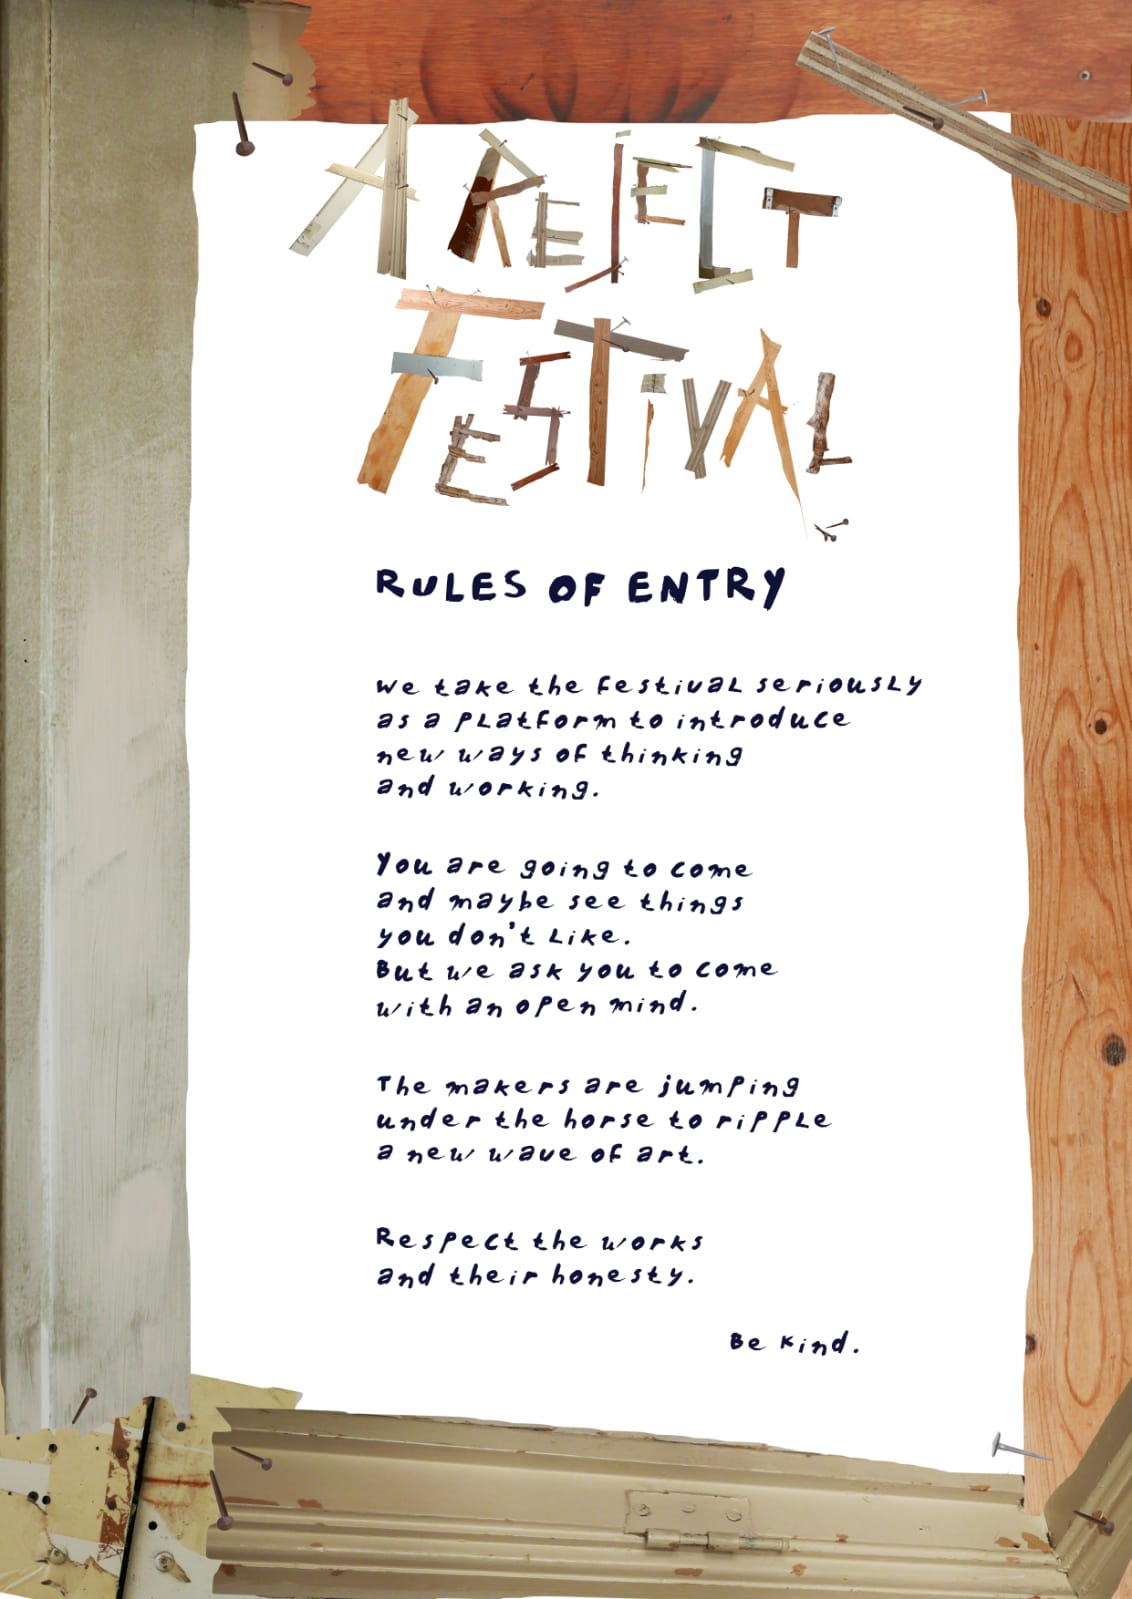 A REJECT
FESTIVAL
RULES OF ENTRY
We take the festival seriously
as a platform to introduce
new ways of thinking
and working.
You are going to come
and maybe see things
you don't like.
But we ask you to come
with an open mind.
The makers are jumping
under the horse to ripple
a new wave of art.
Respect the works
and their honesty.
Be kind.